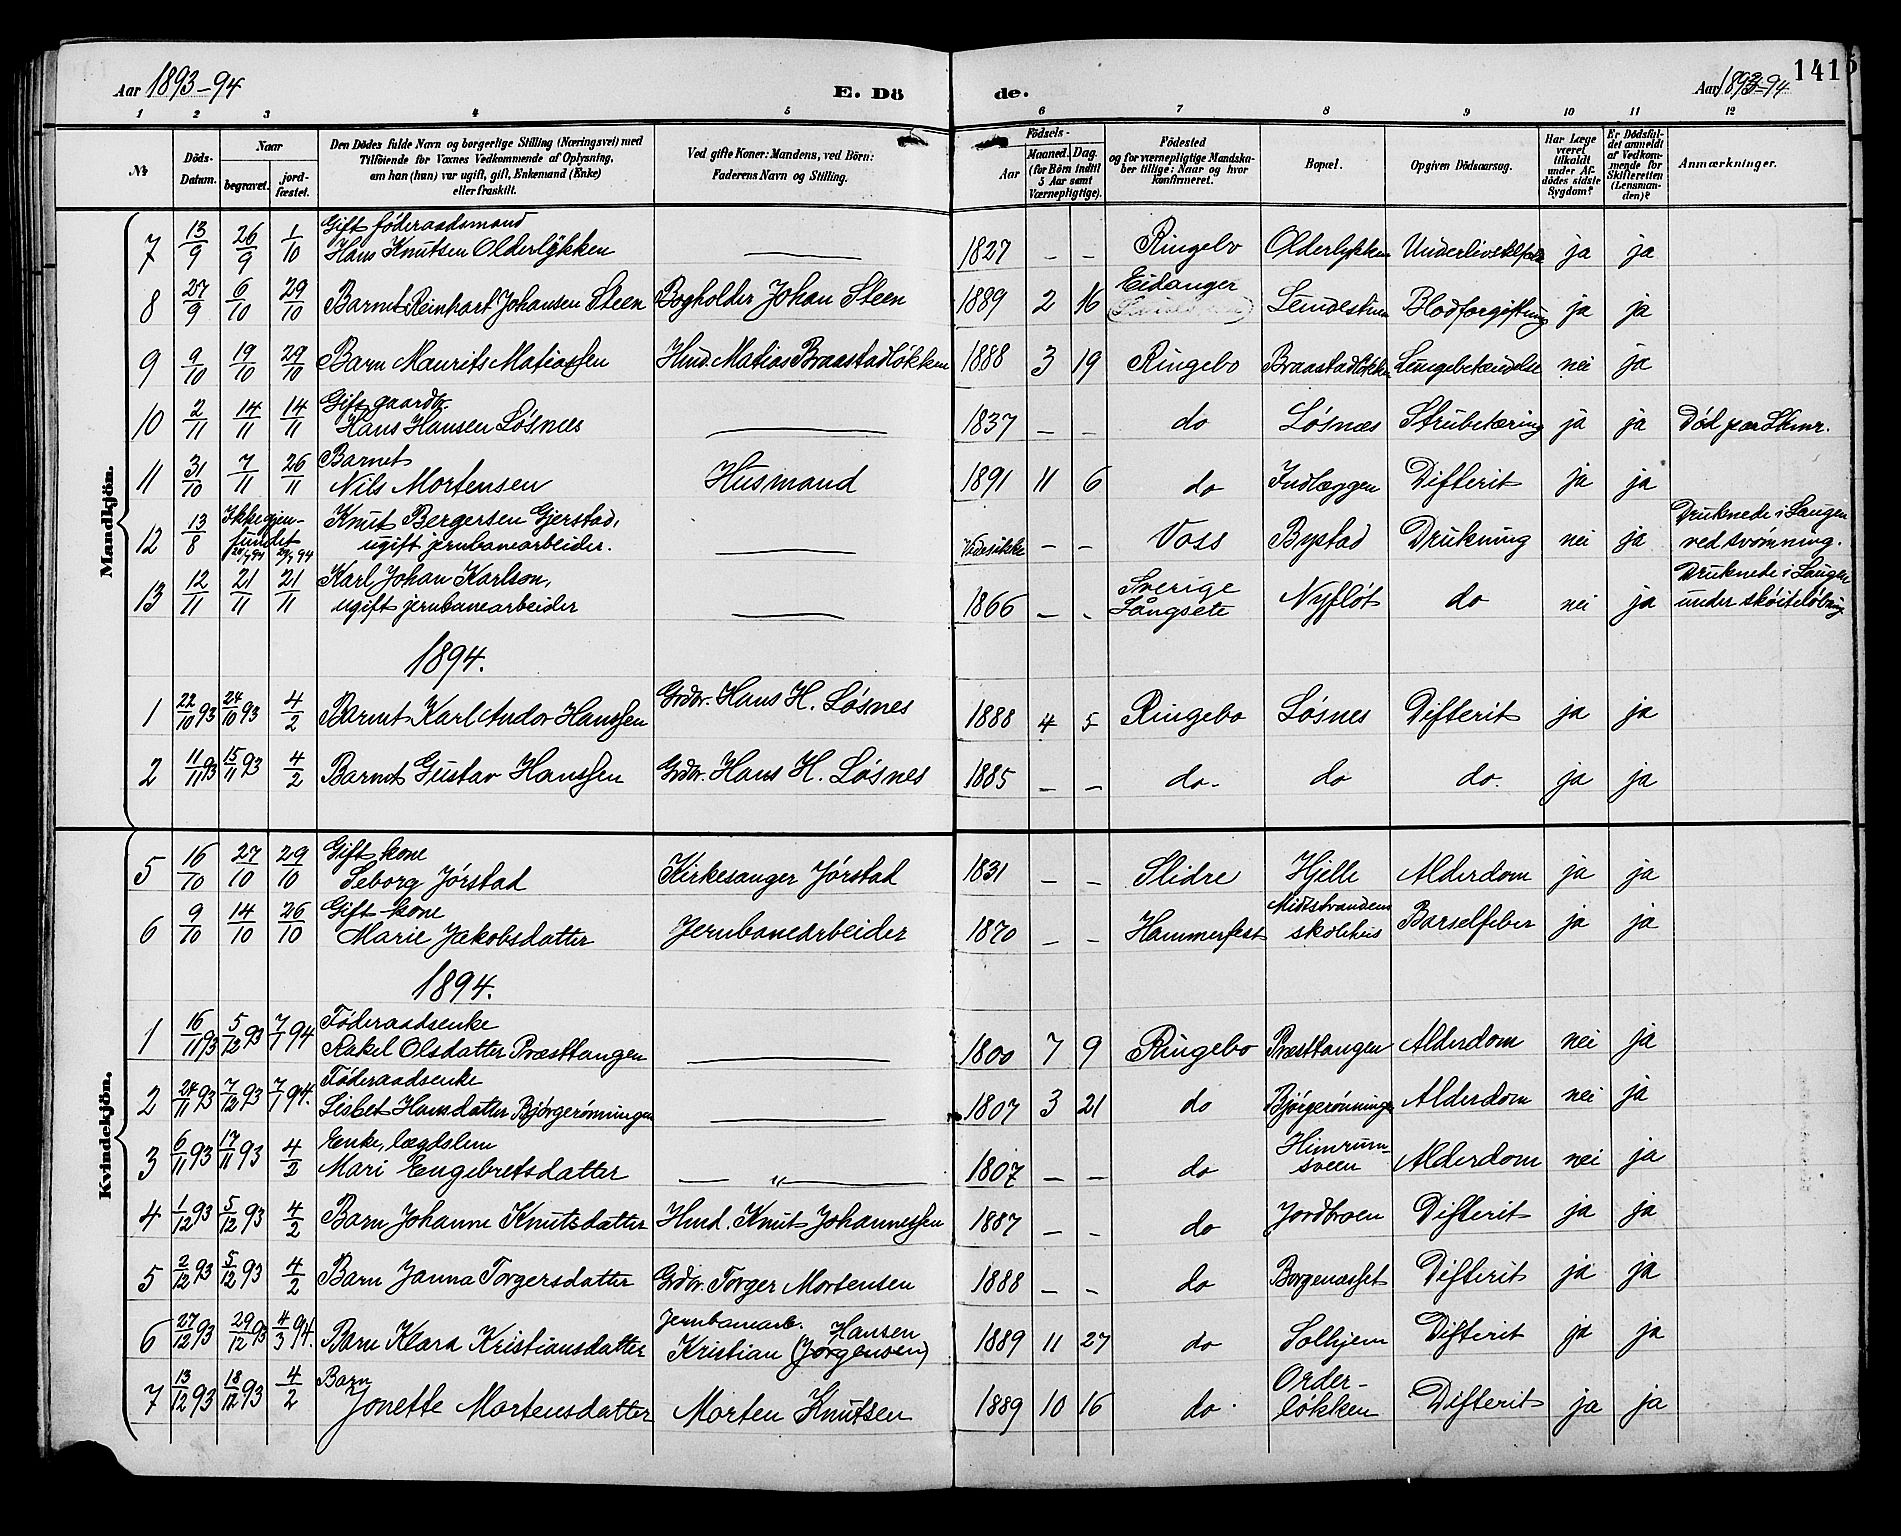 Aar 1893-94
E. Dö
de.
Aar 1893-94
141
1 2 3 4 5 6 7 8 9 10 11 12
№
Döds-Datum.
Naar
begravet.
jord-fæstet.
Den Dödes fulde Navn og borgerlige Stilling (Næringsvei) med
Tilföiende for Voxnes Vedkommende af Oplysning,
om han (hun) var ugift, gift, Enkemand (Enke)
eller fraskilt.
Ved gifte Koner: Mandens, ved Börn:
Faderens Navn og Stilling.
Födsels-
Aar
Maaned. Dag.
(for Börn indtil
5 Aar samt
Værnepligtige).
Födested
og for værnepligtige Mandska-
ber tillige: Naar og hvor
konfirmeret.
Bopæl.
Opgiven Dödsaarsag.
Har Læge
været
tilkaldt
under Af-
dödes sidste
Sygdom?
Er Dödsfal-
det anmeldt
af Vedkom-
mende for
Skifteretten
(Lensman-
den)?
Anmærkninger.
Mandkjön.
7 13/9 26/9 1/10 Gift føderaadsmand
Hans Knutsen Olderlykken — 1827 — — Ringebo Olderlykken ja ja
8 27/9 6/10 29/10 Barnet Reinhart Johansen Steen Bogholder Johan Steen 1889 2 16 Eidanger Blodforgiftning ja ja
9 9/10 19/10 29/10 Barn Maurits Matiassen Husmd. Matias Braastadløkken 1888 3 19 Ringebo Braastadløkken Lungebetændelse nei ja
10 2/11 14/11 14/11 Gift gaardbr.
Hans Hansen Løsnes — 1837 — — do Løsnæs Strubetæring ja ja Død paa
11 31/10 7/11 26/11 Barnet
Nils Mortensen Husmand 1891 11 6 do Indlæggen Difterit ja ja
12 13/8 Ikke gjen-
fundet
Knut Bergersen Gjerstad,
ugift jernbanearbeider. — Vides ikke — — Voss Bystad Drukning nei ja Druknede i Laugen
ved svømning.
13 12/11 21/11 21/11 Karl Johan Karlson,
ugift jernbanearbeider — 1866 — - Sverige
Långsete Nyfløt do nei ja Druknede i Laugen
under skøiteløbning
1894.
1 22/10 93 24/10 93 4/2 Barnet Karl Andor Hanssen Grdbr. Hans H. Løsnes 1888 4 5 Ringebo Løsnes Difterit ja ja
2 11/11 93 15/11 93 4/2 Barnet Gustav Hanssen Grdbr. Hans H. Løsnes 1885 — — do - do do. ja ja
Kvindekjön.
5 16/10 27/10 29/10 Gift kone
Seborg Jørstad Kirkesanger Jørstad 1831 — — Slidre Hjelle Alderdom ja ja
6 9/10 14/10 26/10 Gift kone
Marie Jakobsdatter Jernbanearbeider 1870 — — Hammerfest Midtstrandens
skolehus Barselfeber ja ja
1894.
1 16/11 93 5/12 93 7/1 94 Føderaadsenke
Rakel Olsdatter Præsttangen — 1800 7 9 Ringebo Præsttangen Alderdom nei ja
2 24/11 93 7/12 93 7/1 94. Føderaadsenke
Lisbet Hansdatter Bjørgerønningen — 1807 3 21 do Bjørgerønningen Alderdom nei ja
3 6/11 93 17/11 93 4/2 Enke, lægdslem
Mari Engebretsdatter — „ — 1807 — — do Himrum-
sveen Alderdom nei ja
4 1/12 93 5/12 93 4/2 Barn Johanne Knutsdatter Husmd. Knut Johannessen 1887 — — do Jordbroen Difterit ja ja
5 2/12 93 5/12 93 4/2 Barn Janna Torgersdatter Grdbr. Torger Mortensen 1888 — — do Borgenasset Difterit ja ja
6 27/12 93 29/12 93 4/3 94. Barn Klara Kristiansdatter Jernbanearb. Hansen
Kristian (Jørgensen) 1889 11 27 do Solhjem Difterit ja ja
7 13/12 93 18/12 93 4/2 Barn
Jonette Mortensdatter Morten Knutsen 1889 10 16 do. Order-
løkken Difterit ja ja